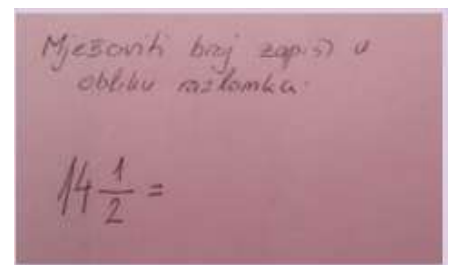 Mješoviti broj zapiši u
obliku razlomka.
14 1/2 =